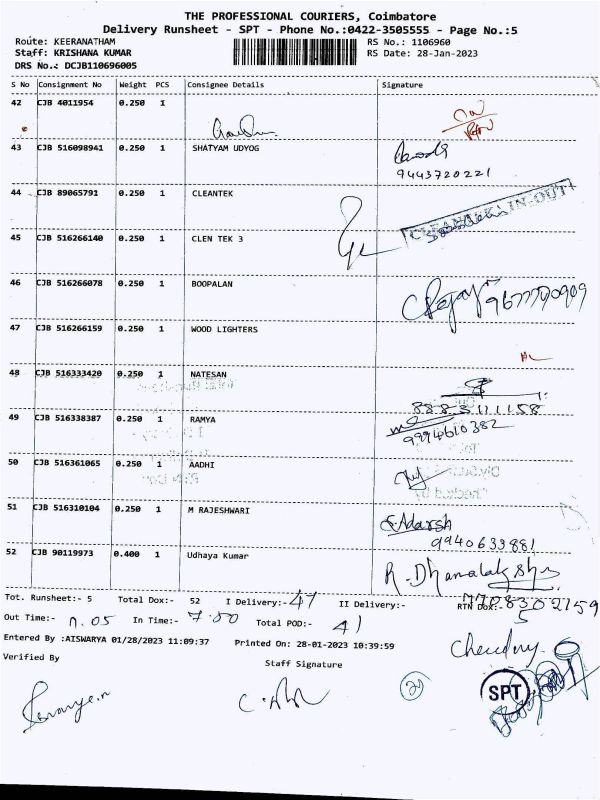 THE PROFESSIONAL COURIERS, Coimbatore
Delivery Runsheet - SPT - Phone No.:0422-3505555 - Page No.:5
Route: KEERANATHAM RS No.: 1106960
Staff: KRISHANA KUMAR RS Date: 28-Jan-2023
DRS No.: DCJB110696005
S No Consignment No Weight PCS Consignee Details Signature
42 CJB 4011954 0.250 1
43 CJB 516098941 0.250 1 SHATYAM UDYOG
9443720221
44 CJB 89065791 0.250 1 CLEANTEK
45 CJB 516266140 0.250 1 CLEN TEK 3
46 CJB 516266078 0.250 1 BOOPALAN
9677790909
47 CJB 516266159 0.250 1 WOOD LIGHTERS
48 CJB 516333420 0.250 1 NATESAN
8883111158
49 CJB 516338387 0.250 1 RAMYA
9994610382
50 CJB 516361065 0.250 1 AADHI
51 CJB 516310104 0.250 1 M RAJESHWARI
S.Adarsh
9940633881
52 CJB 90119973 0.400 1 Udhaya Kumar
R. Dhanalakshmi
Tot. Runsheet:- 5 Total Dox:- 52 I Delivery:- 47 II Delivery:- RTN Dox:- 5
7708302159
Out Time:- 11.05 In Time:- 7.00 Total POD:- 41
Entered By :AISWARYA 01/28/2023 11:09:37 Printed On: 28-01-2023 10:39:59
Verified By Staff Signature
SPT